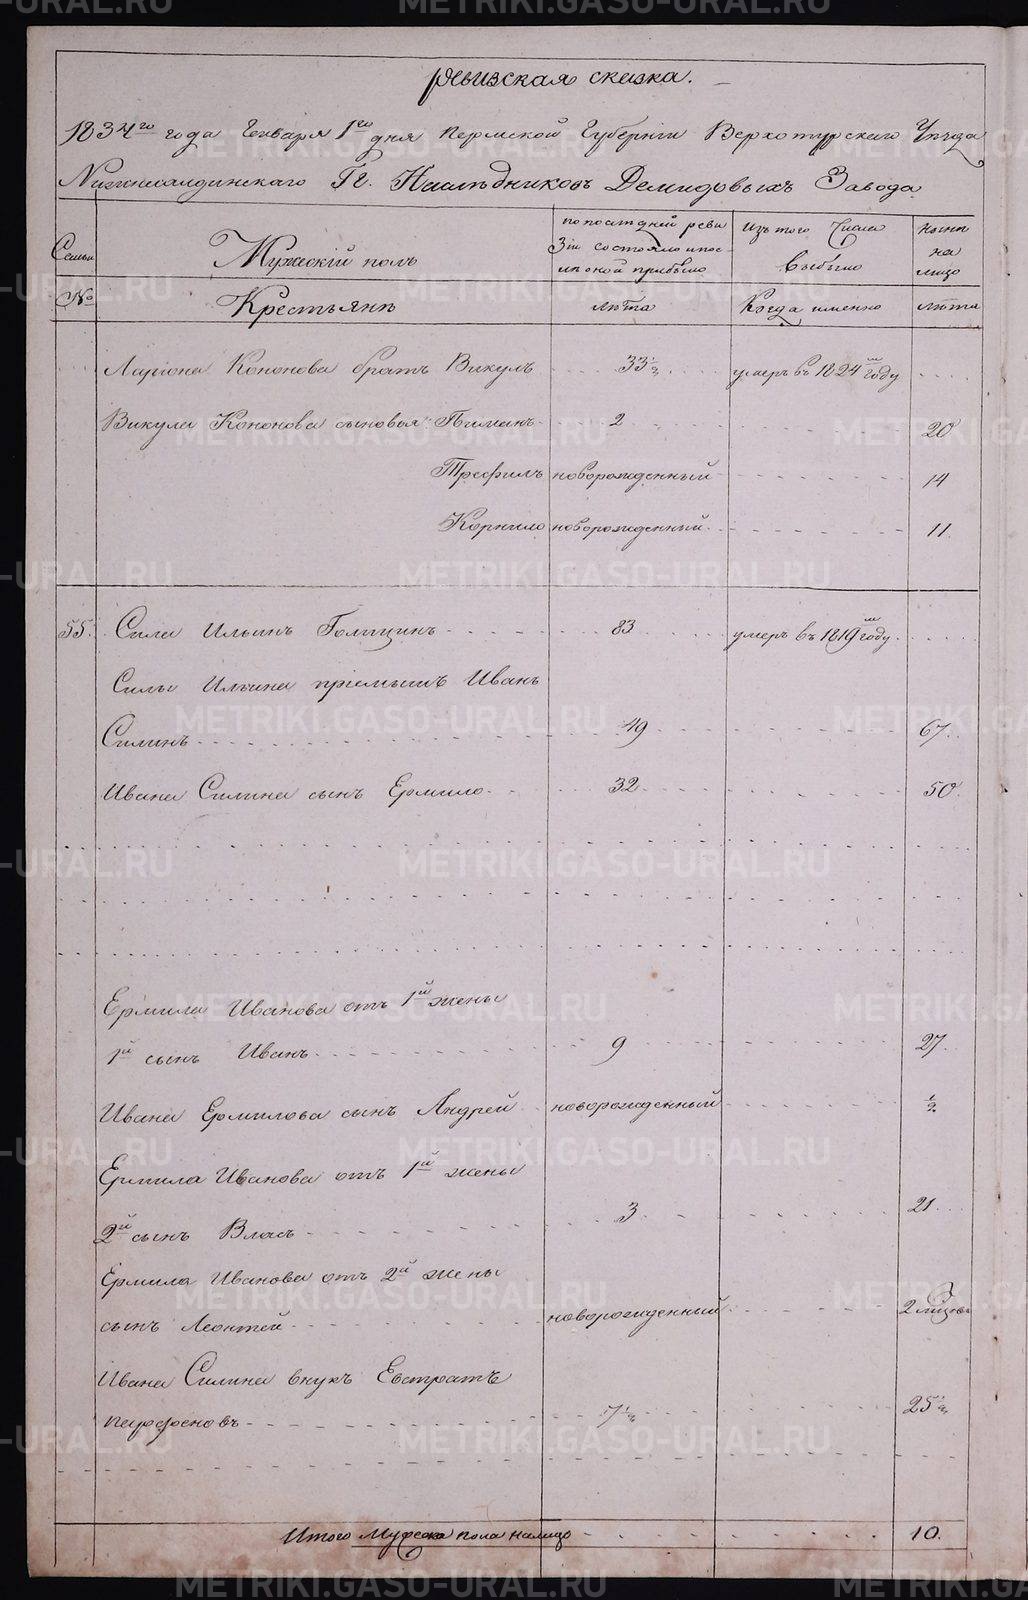 Ревизская сказка.
1834го года Генваря 1го дня Пермской Губернiи Верхотурскаго Уѣзда
Нижнесалдинскаго Гг. Наслѣдниковъ Демидовыхъ Завода
Семьи
Мужескiй полъ
по последней реви
зiи состояло и пос-
лѣ оной прибыло
Изъ того Числа
выбыло
нынѣ
на
лицо
№
Крестьянѣ
лѣта
Когда именно
лѣта
Ларiона Кононова братъ Викулъ 33½ умеръ въ 1824м году
Викула Кононова сыновья: Пиманъ 2 20
Трефилъ новорожденный 14
Корнило новорожденный 11
55. Сила Ильинъ Голицинъ 83 умеръ въ 1819м году
Силы Ильина прiемышъ Иванъ
Силинъ 49 67
Ивана Силина сынъ Ермило 32 50
Ермила Иванова отъ 1й жены
1й сынъ Иванъ 9 27
Ивана Ермилова сынъ Андрей новорожденный ½
Ермила Иванова отъ 1й жены
2й сынъ Власъ 3 21
Ермила Иванова отъ 2й жены
сынъ Леонтей новорожденный 2
Ивана Силина внукъ Евстратъ
Парфеновъ 7½ 25½
Итого Мужеска пола налицо 10.
METRIKI.GASO-URAL.RU